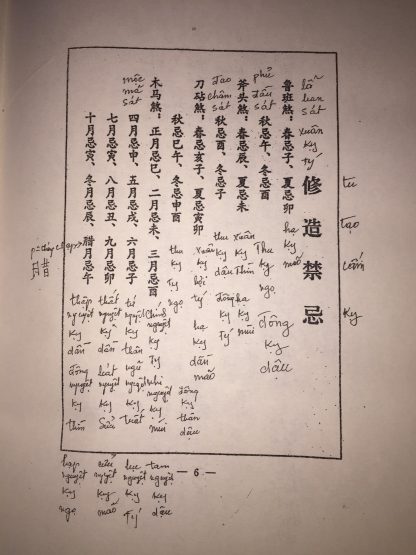 修造禁忌
tu tạo cấm kỵ
鲁班煞：春忌子、夏忌卯
秋忌午、冬忌酉
斧头煞：春忌辰、夏忌未
秋忌酉、冬忌子
刀砧煞：春忌亥子、夏忌寅卯
秋忌巳午、冬忌申酉
木马煞：正月忌巳、二月忌未、三月忌酉
四月忌申、五月忌戌、六月忌子
七月忌寅、八月忌丑、九月忌卯
十月忌寅、冬月忌辰、腊月忌午
lỗ ban sát xuân kỵ tý
hạ kỵ mão
Thu kỵ ngọ
đông kỵ dậu
phủ đầu sát
xuân kỵ Thìn
hạ kỵ mùi
thu kỵ dậu
đông kỵ Tý
đao châm sát
xuân kỵ hợi tý
hạ kỵ dần mão
thu kỵ Tỵ ngọ
đông kỵ thân dậu
mộc mã sát
Chính nguyệt kỵ Tỵ
nhị nguyệt kỵ mùi
tam nguyệt kỵ dậu
tứ nguyệt kỵ thân
ngũ nguyệt kỵ tuất
lục nguyệt kỵ Tý
thất nguyệt kỵ dần
bát nguyệt kỵ Sửu
cửu nguyệt kỵ mão
thập nguyệt kỵ dần
đông nguyệt kỵ thìn
lạp nguyệt kỵ ngọ
月昔
— 6 —